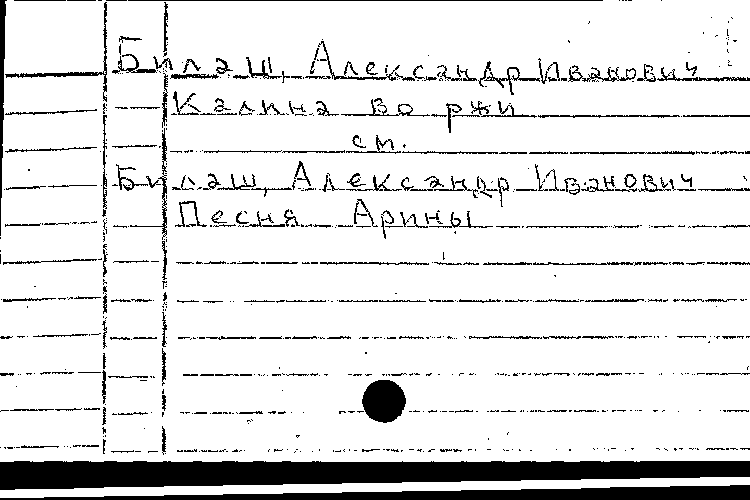 Билаш, Александр Иванович
Калина во ржи
см.
Билаш, Александр Иванович
Песня Арины